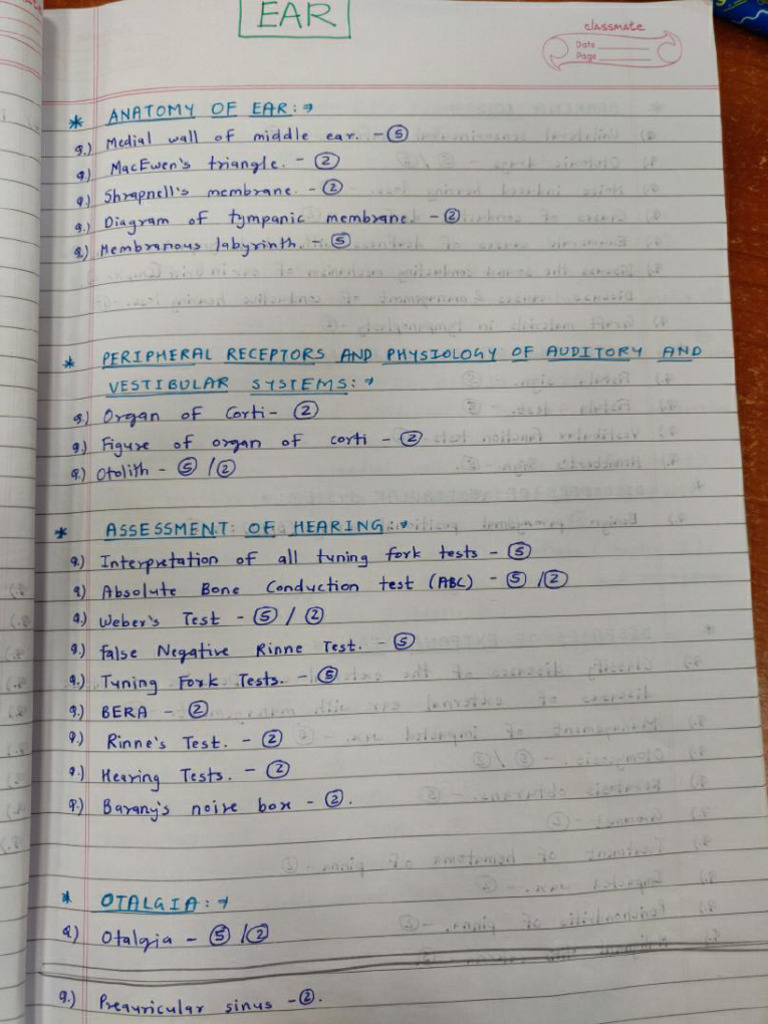 EAR
classmate
Date
Page
* ANATOMY OF EAR:→
Q.) Medial wall of middle ear. - ⑤
Q) MacEwen's triangle. - ②
Q) Shrapnell's membrane. - ②
Q.) Diagram of tympanic membrane. - ②
Q) Membranous labyrinth. - ⑤
* PERIPHERAL RECEPTORS AND PHYSIOLOGY OF AUDITORY AND
VESTIBULAR SYSTEMS:→
Q) Organ of Corti - ②
Q) Figure of organ of corti - ②
Q.) Otolith - ⑤ / ②
* ASSESSMENT OF HEARING:→
Q.) Interpretation of all tuning fork tests - ⑤
Q) Absolute Bone Conduction test (ABC) - ⑤ / ②
Q.) Weber's Test - ⑤ / ②
Q.) False Negative Rinne Test. - ⑤
Q.) Tuning Fork Tests. - ⑤
Q.) BERA - ②
Q.) Rinne's Test. - ②
Q.) Hearing Tests. - ②
Q.) Barany's noise box - ②.
* OTALGIA:→
Q) Otalgia - ⑤ / ②
Q.) Preauricular sinus - ②.